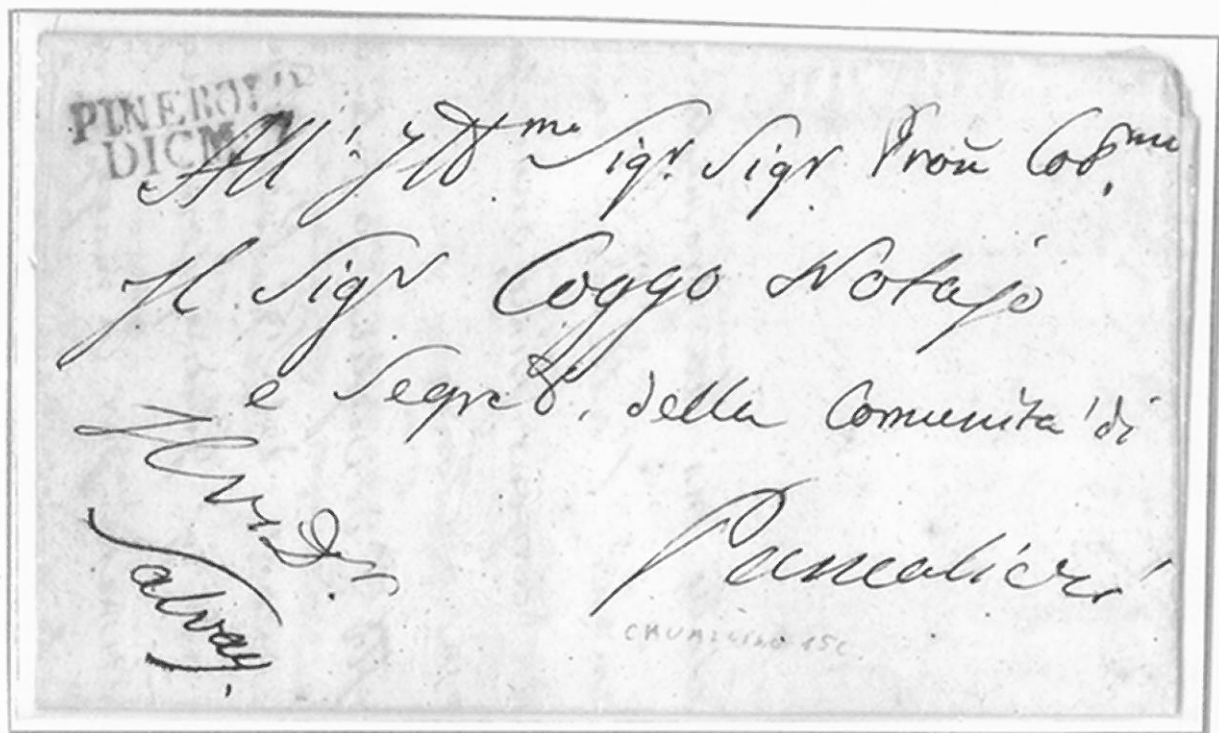 PINEROLO
DICM
All' Ill.mo Sigr. Sigr Pron Col.mo
Il Sigr Coggo Notajo
e Segret.o della Comunità di
Pancalieri
Salvay.